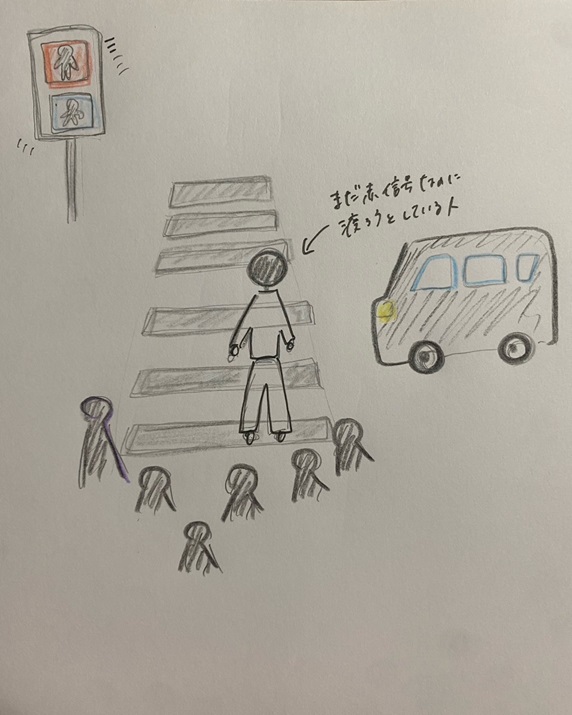 まだ赤信号なのに
渡ろうとしている人